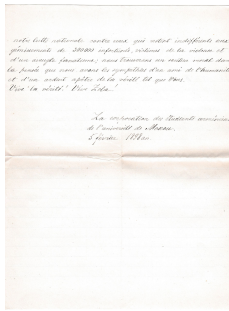 notre lutte nationale contre ceux qui restent indifférents aux
gémissements de 300000 infortunés, victimes de la violence et
d'un aveugle fanatisme, nous trouvons un soutien moral dans
la pensée que nous avons les sympathies d'un ami de l'humanité
et d'un ardent apôtre de la vérité tel que Vous.
Vive la vérité! Vive Zola!
La corporation des Étudiants arméniens
de l'université de Moscou
5 février 1898